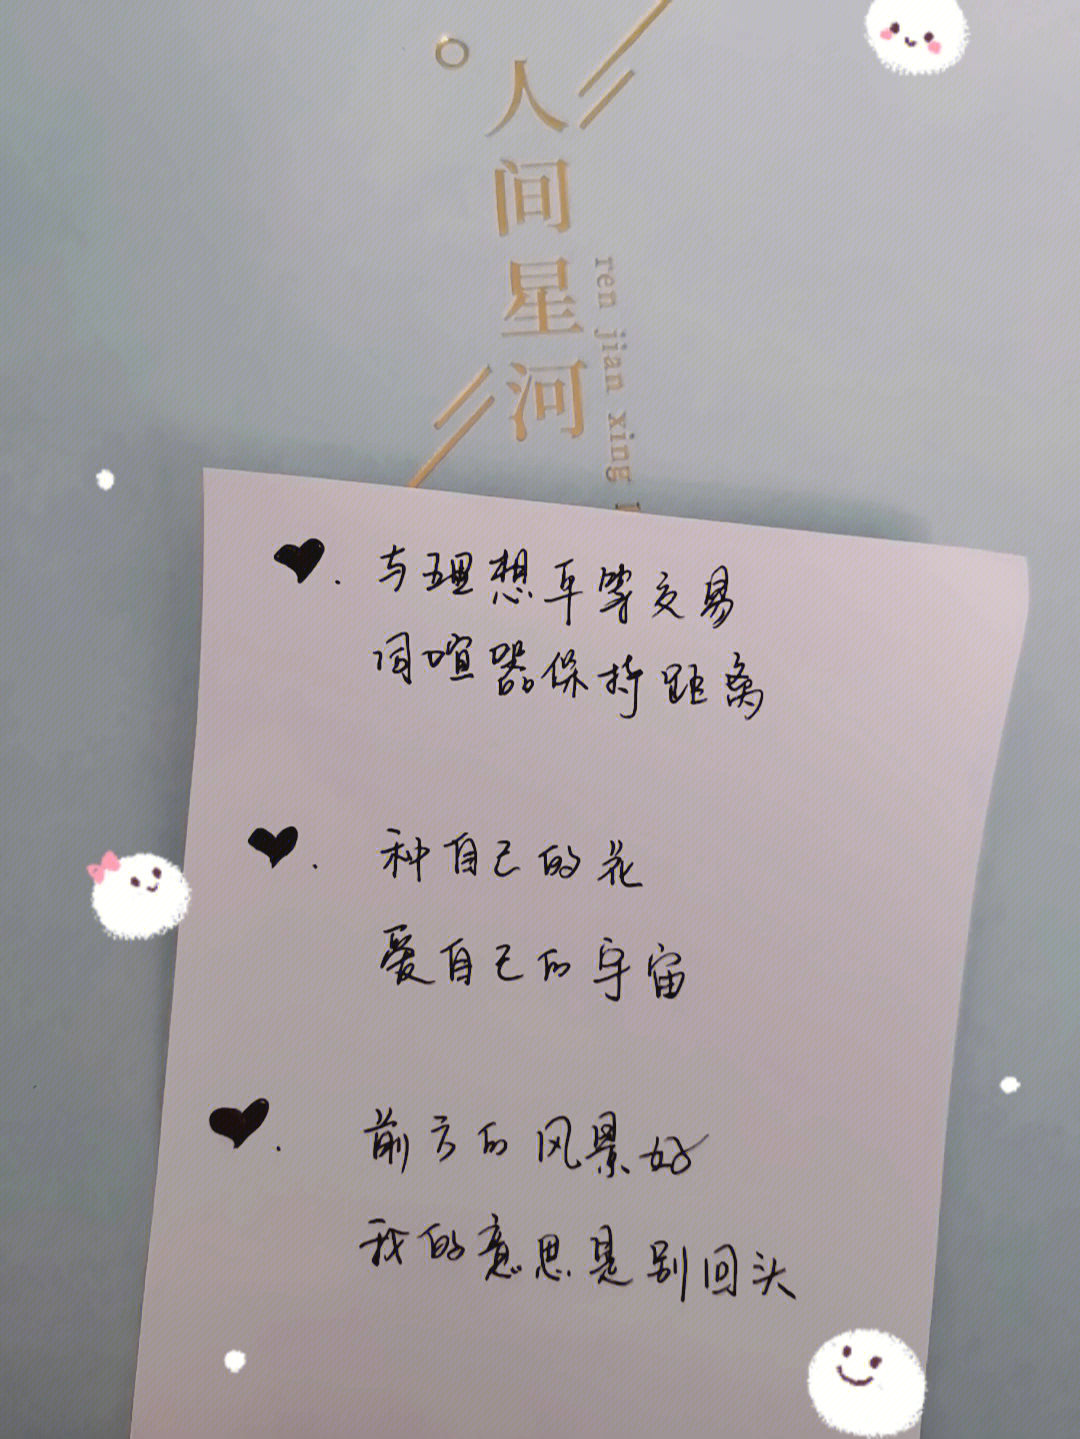 人间星河
ren jian xing
与理想平等交易
同喧嚣保持距离
种自己的花
爱自己的宇宙
前方的风景好
我的意思是别回头